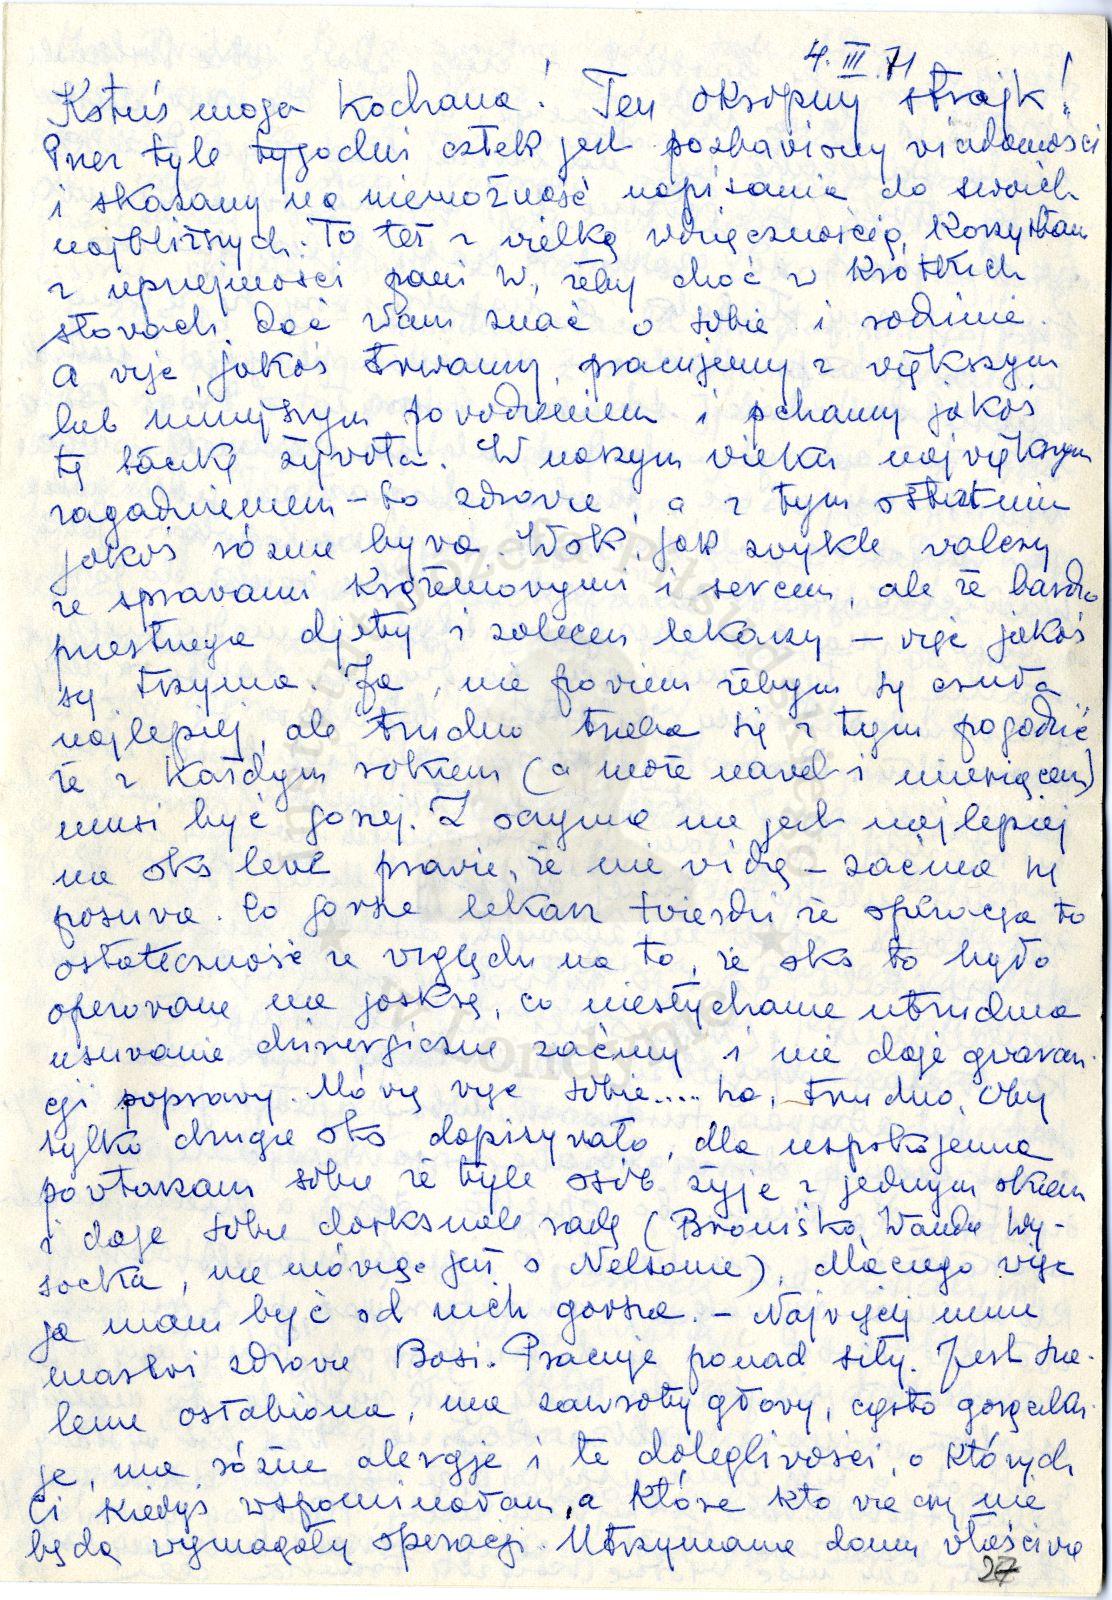 4. III. 71
Ketuś moja kochana! Ten okropny strajk!
Przez tyle tygodni człek jest pozbawiony wiadomości
i skazany na niemożność napisania do swoich
najbliższych. To też z wielką wdzięcznością, korzystam
z uprzejmości pani W, żeby choć w krótkich
słowach dać Wam znać o sobie i rodzinie.
A więc, jakoś trwamy, pracujemy z większym
lub mniejszym powodzeniem i pchamy jakoś
tę taczkę żywota. W naszym wieku największym
zagadnieniem – to zdrowie, a z tym ostatnim
jakoś różnie bywa. Wok, jak zwykle walczy
ze sprawami krążeniowymi i sercem, ale że bardzo
przestrzega djety i zaleceń lekarzy – więc jakoś
się trzyma. Ja, nie powiem żebym się czuła
najlepiej, ale trudno trzeba się z tym pogodzić
że z każdym rokiem (a może nawet i miesiącem)
musi być gorzej. Z oczyma nie jest najlepiej
na oko lewe prawie, że nie widzę – zaćma się
posuwa. Co gorsze lekarz twierdzi że operacja to
ostateczność ze względu na to, że oko to było
operowane na jaskrę, co niesłychanie utrudnia
usuwanie chirurgiczne zaćmy i nie daje gwaran-
cji poprawy. Mówię więc sobie..... ha, trudno, oby
tylko drugie oko dopisywało, dla uspokojenia
powtarzam sobie że tyle osób żyje z jednym okiem
i daje sobie doskonale radę (Broniśka, Wanda Wy-
socka, nie mówiąc już o Nelsonie), dlaczego więc
ja mam być od nich gorsza. – Najwięcej mnie
martwi zdrowie Basi. Pracuje ponad siły. Jest sza-
lenie osłabiona, ma zawroty głowy, często gorączku-
je, ma różne alergje i te dolegliwości, o których
Ci kiedyś wspominałam, a które kto wie czy nie
będą wymagały operacji. Utrzymanie domu właściwie
27
Instytut Józefa Piłsudskiego
w Londynie